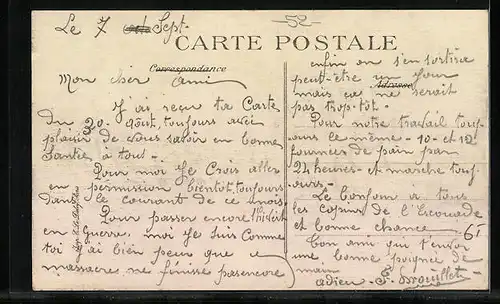 52
Le 7 Sept.
CARTE POSTALE
Correspondance
Adresse
Mon cher Ami
J'ai reçu ta Carte
Du 30. Août, toujours avec
plaisir de vous savoir en bonne
Santée à tout.
Pour moi Je Crois aller
en permission bientôt, toujours
Dans le courant de ce mois.
Pour passer encore
en Guerre, moi Je Suis Comme
toi j'ai bien peur que ce
massacre ne finisse pas encore
enfin on s'en sortira
peut-être un Jour
mais ça ne serait
pas trop tôt.
Pour notre travail touj-
ours le même - 10 et 12
fournées de pain par
24 heures et marche touj-
ours.
Le bonjour à tous
les copins de l'Escouade
et bonne chance
61
Ton ami qui t'envoi
une bonne poignée de
main
adieu. E.